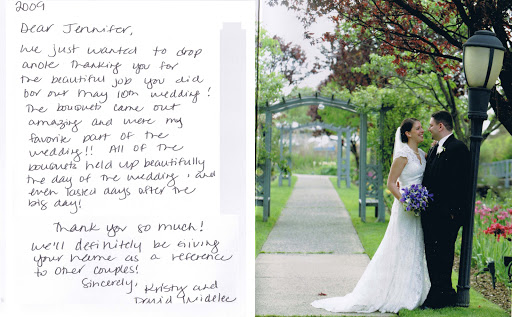 2009
Dear Jennifer,
We just wanted to drop
anote thanking you for
the beautiful job you did
for our May 10th wedding!
The bouquets came out
amazing and were my
favorite part of the
wedding!! All of the
bouquets held up beautifully
the day of the wedding, and
even lasted days after the
big day!
Thank you so much!
We'll definitely be giving
your name as a reference
to other couples!
Sincerely,
Kristy and
David